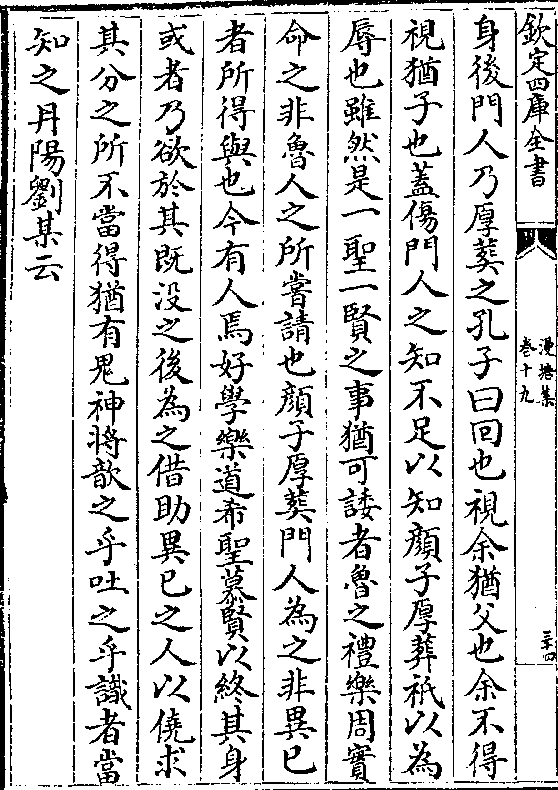 欽定四庫全書
漫塘集
卷十九
三十四
身後門人乃厚葬之孔子曰回也視余猶父也余不得
視猶子也蓋傷門人之知不足以知顔子厚葬祇以為
辱也雖然是一聖一賢之事猶可諉者魯之禮樂周實
命之非魯人之所嘗請也顔子厚葬門人為之非異已
者所得與也今有人焉好學樂道希聖慕賢以終其身
或者乃欲於其既沒之後為之借助異已之人以僥求
其分之所不當得猶有鬼神將歆之乎吐之乎識者當
知之丹陽劉某云